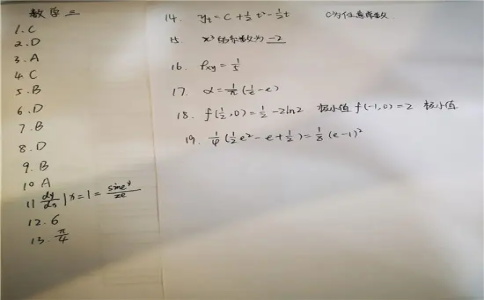 数学三
1. C
2. D
3. A
4. C
5. B
6. D
7. B
8. D
9. B
10 A
11 dy/dx | x=1 = sine⁴/2e
12. 6
13. π/4
14. yt = C + ½t² - ½t C为任意常数
15. x³的系数为 -2
16. ρxy = 1/5
17 α = 1/π(½-e)
18. f(½,0) = ½ - 2ln2 极小值 f(-1,0) = 2 极小值
19. ¼(½e² - e + ½) = ⅛(e-1)²